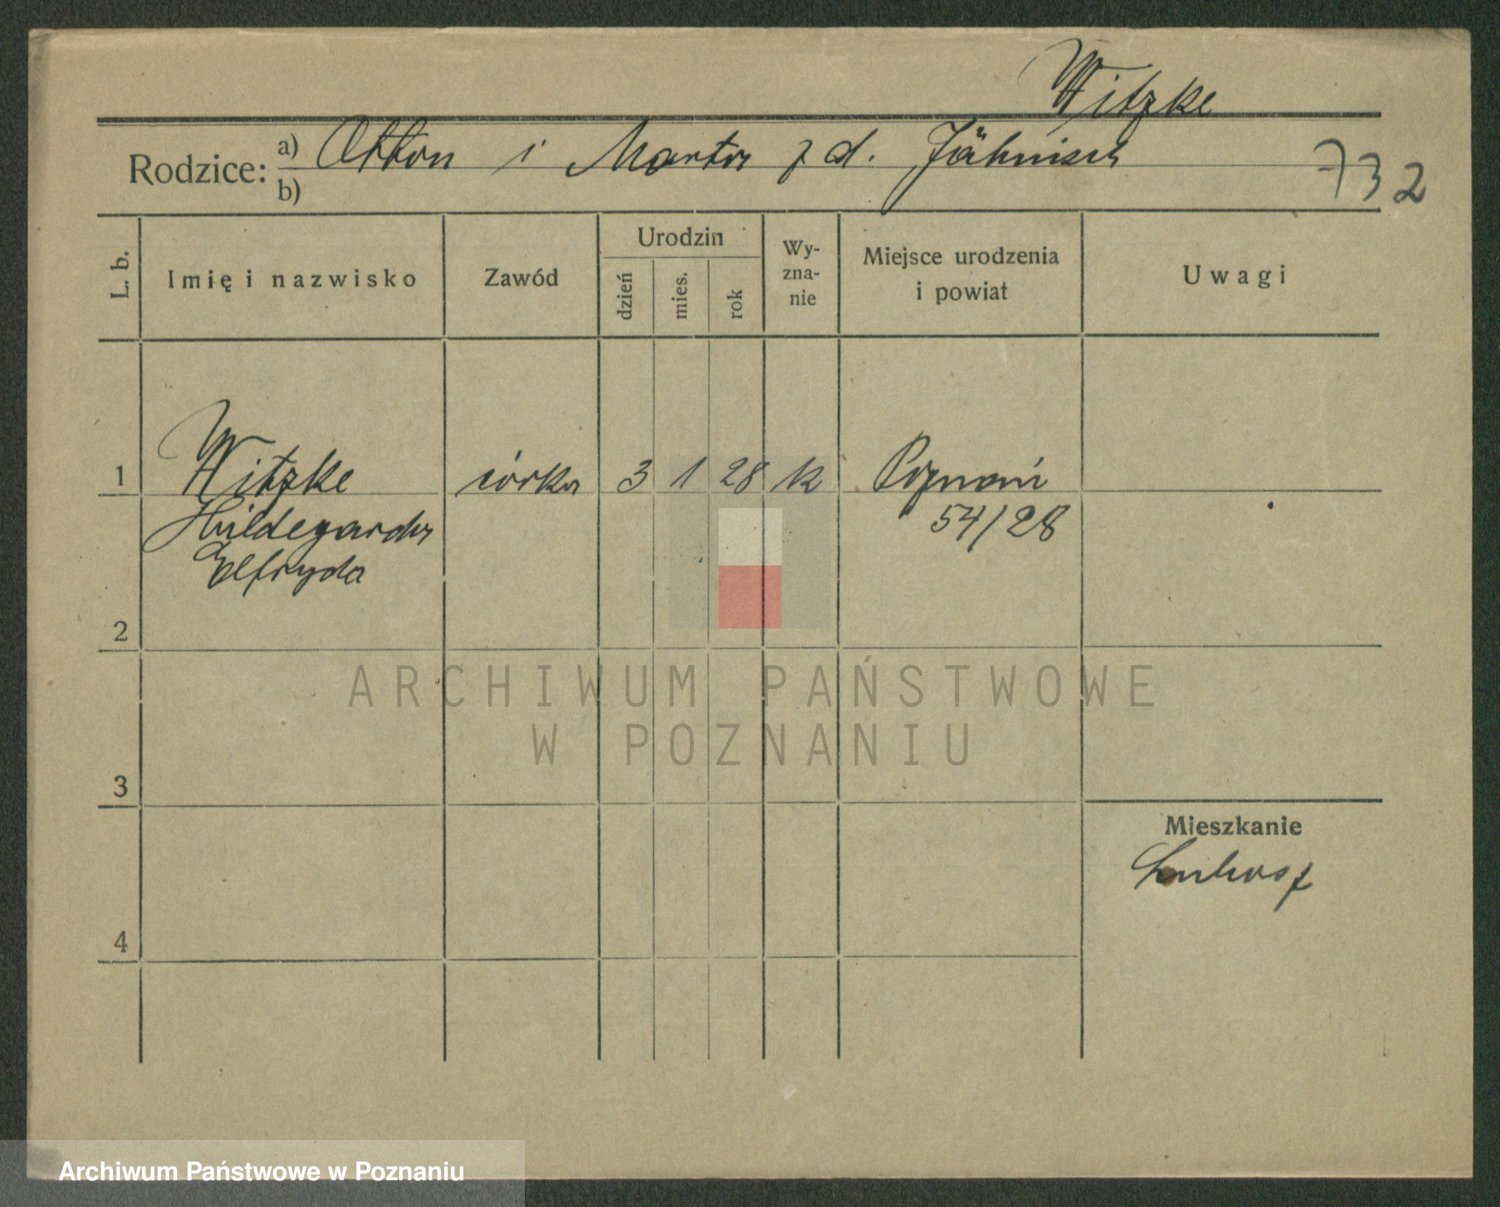 Witzke
Rodzice: a) Otton i Marta z d. Jähnisch
b)
732
L. b.
Imię i nazwisko
Zawód
Urodzin
dzień
mies.
rok
Wy-
zna-
nie
Miejsce urodzenia
i powiat
Uwagi
1 Witzke córka 3 1 28 k Poznań
Hildegarda 54/28
Elfryda
2
3
4
Mieszkanie
Lubosz
ARCHIWUM PAŃSTWOWE
W POZNANIU
Archiwum Państwowe w Poznaniu